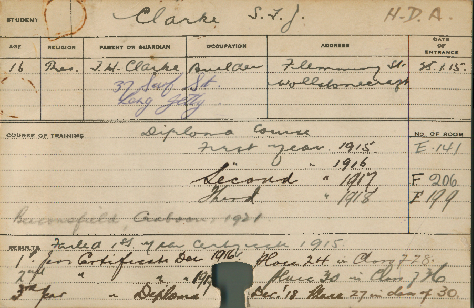 STUDENT Clarke S. T. J. H.D.A.
AGE RELIGION PARENT OR GUARDIAN OCCUPATION ADDRESS DATE OF ENTRANCE
16 Pres. J. H. Clarke Builder Flemming St. 28.1.15.
37 St. Wollstonecraft
Long
COURSE OF TRAINING Diploma Course NO. OF ROOM
First year 1915 E 141
" " 1916
Second " 1917 F 206
Third " 1918 F 199
Beaconsfield 1921
RESULTS Failed 1st year Certificate 1915.
1st year Certificate Dec 1916 Place 24 in Class of 28.
2nd " " Place 30 in Class of 36
3rd year " Diploma Dec. 18 Place 27 in class of 30.